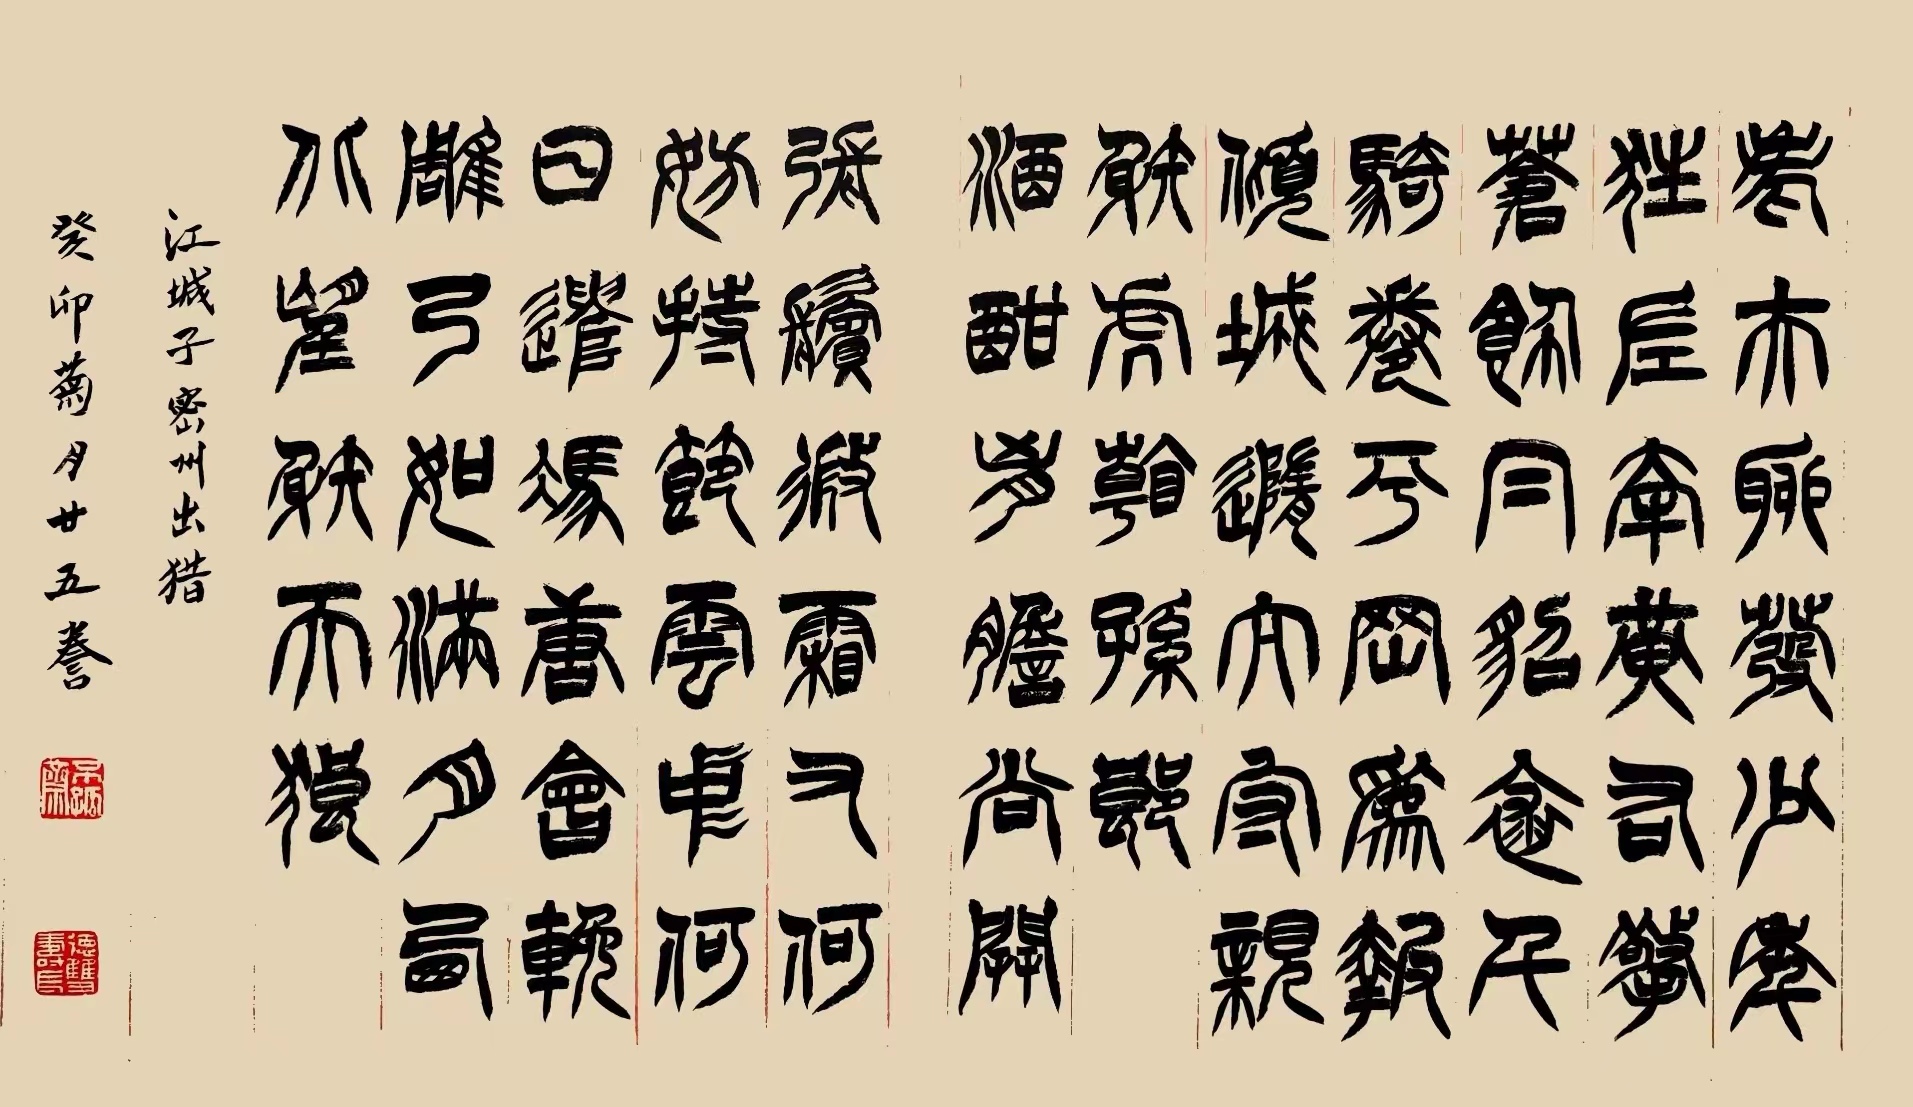 老夫聊發少年
狂左牽黃右擎
蒼錦帽貂裘千
騎卷平岡為報
傾城隨太守親
射虎看孫郎
酒酣胸膽尚開
張鬢微霜又何
妨持節雲中何
日遣馮唐會挽
雕弓如滿月西
北望射天狼
江城子密州出猎
癸卯菊月廿五誊
德雙書印